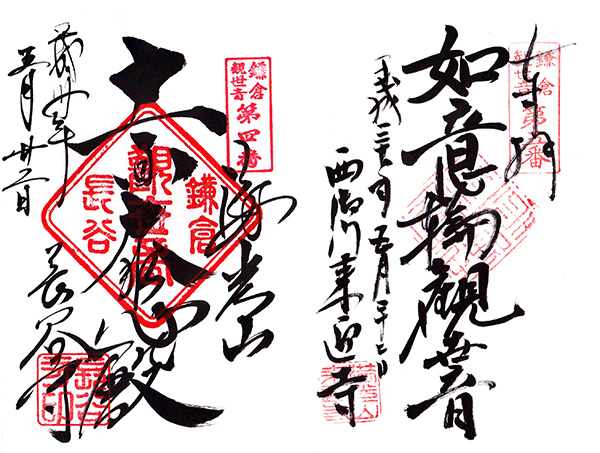 奉拝
鎌倉
観世音
第五番
如意輪観世音
平成三十年五月三十一日
西御門来迎寺
鎌倉
観世音
第四番
海光山
大悲殿
鎌倉
観世音
長谷
長谷寺
五月廿一日